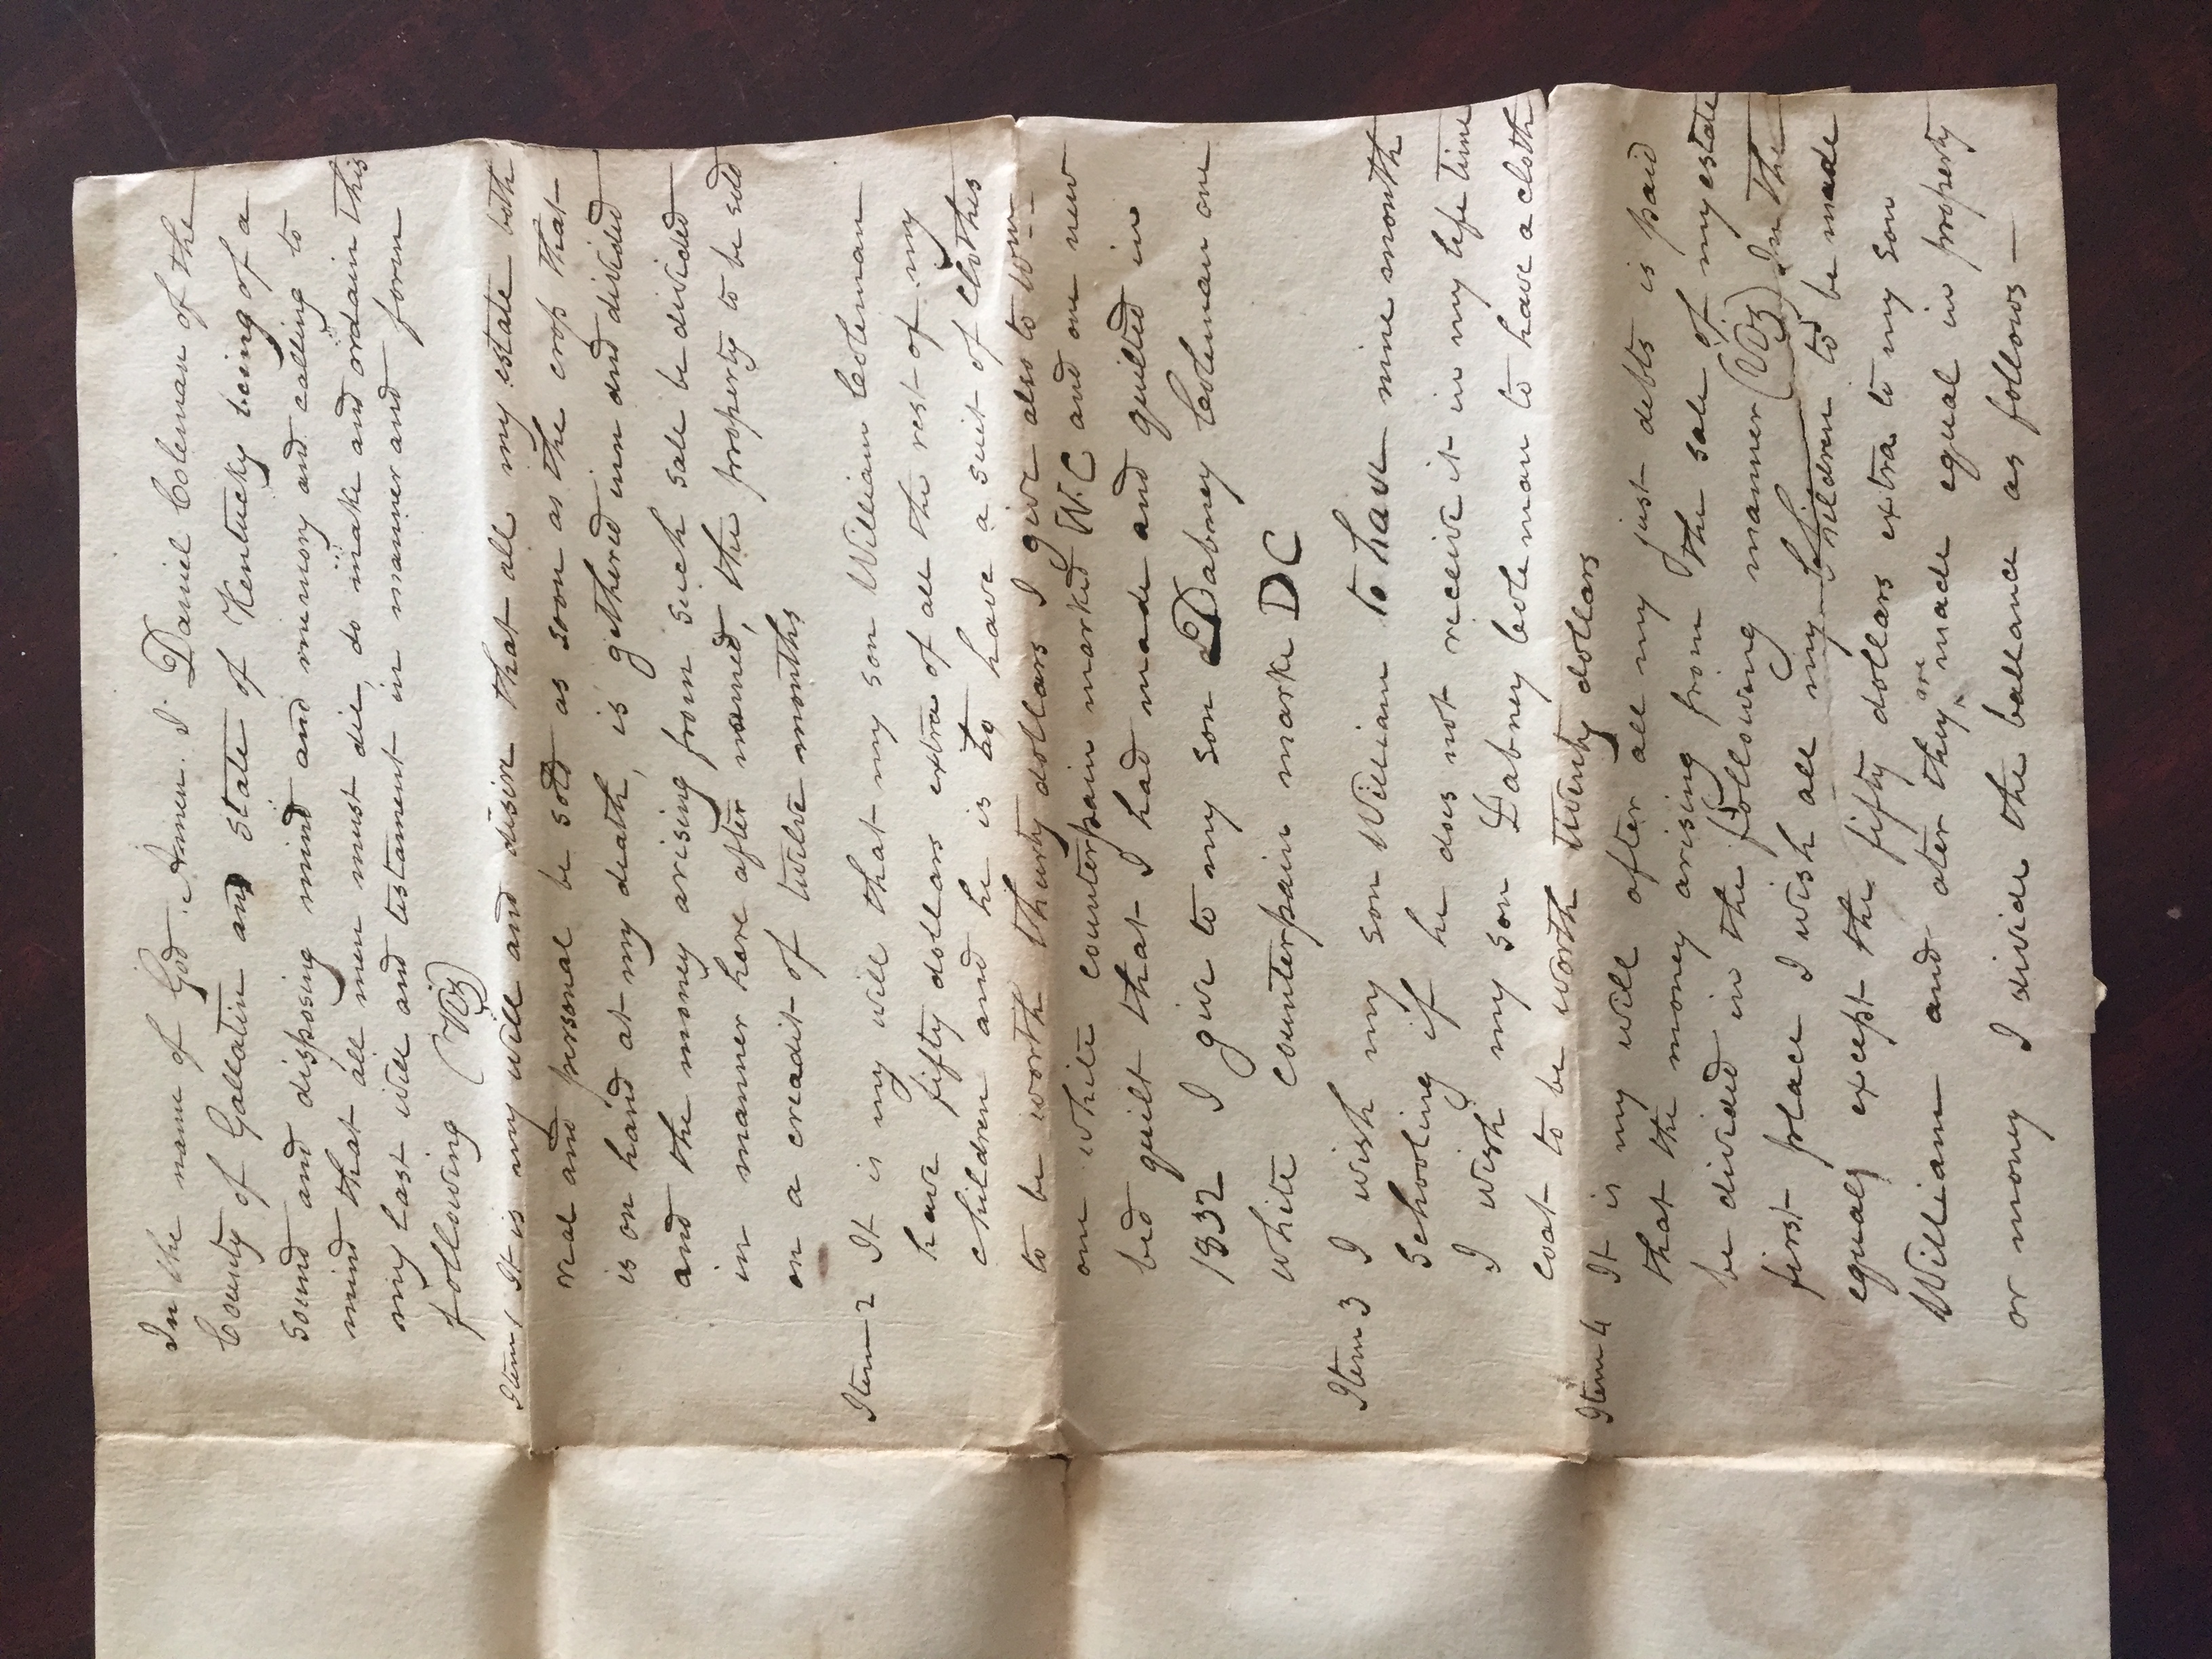 In the name of God Amen. I Daniel Coleman of the
County of Gallatin and state of Kentucky being of a
sound and disposing mind and memory and calling to
mind that all men must die, do make and ordain this
my last will and testament in manner and form
following (Viz)
Item 1 It is my will and disire that all my estate both
real and personal be sold as soon as the crop that
is on hand at my death, is gethered inn and divided
and the money arising from such sale be divided
in manner here after named, the property to be sold
on a creadit of twilve months
Item 2 It is my will that my son William Coleman
have fifty dollars extra of all the rest of my
children and he is to have a suit of clothes
to be worth thirty dollars I give also to him--
one white counterpain marked W.C and one new
bed quilt that I had made and quilted in
1832 I give to my son Dabney Coleman one
white counterpain marke DC
Item 3 I wish my son William to have nine month
schooling if he does not receive it in my life time
I wish my son Dabney Coleman to have a cloth
coat to be worth twenty dollars
Item 4 It is my will after all my just debts is paid
that the money arising from the sale of my estate
be divided in the following manner (Viz) In the
first place I wish all my children to be made
equally except the fifty dollars extra to my son
William and after they are made equal in property
or money I divide the ballance as follows —